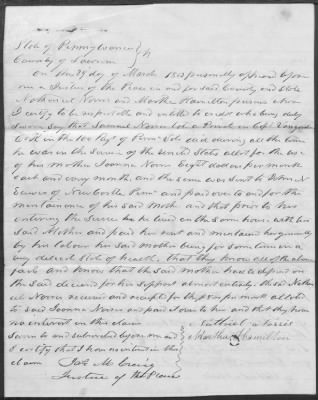 State of Pennsylvania
County of Lawrence
On the 29 day of March 1865 personally appeared before
me a Justice of the Peace in and for said County and State
Nathaniel Norris and Martha Hamilton persons whom
I certify to be respectable and entitled to credit who being duly
sworn say that Samuel Norris late a Private in Capt
Co K in the 100 Regt of Penn Vols did during all the time
he was in the Service of the United States allot for the use
of his mother Joanna Norris Eight dollars per month
each and every month, and the same was sent to John
of New Castle Penn and paid over to and for the
maintainance of his said Mother and that prior to his
entering the Service he lived on the same house with his
said Mother and paid her rent and maintained her generally
by his labour his said mother being for some time in a
very delicate State of health, that they know all of the above
facts and know that the said mother had to depend on
the said deceased for her support almost entirely. the said Nath
aniel Norris received and receipted for the
to said Joanna Norris and paid it over to her and that they have
no interest in this claim
Sworn to and subscribed before me and
I certify that I have no interest in this
claim
Nathaniel Norris
Martha J Hamilton
Jas M Craig
Justice of the Peace